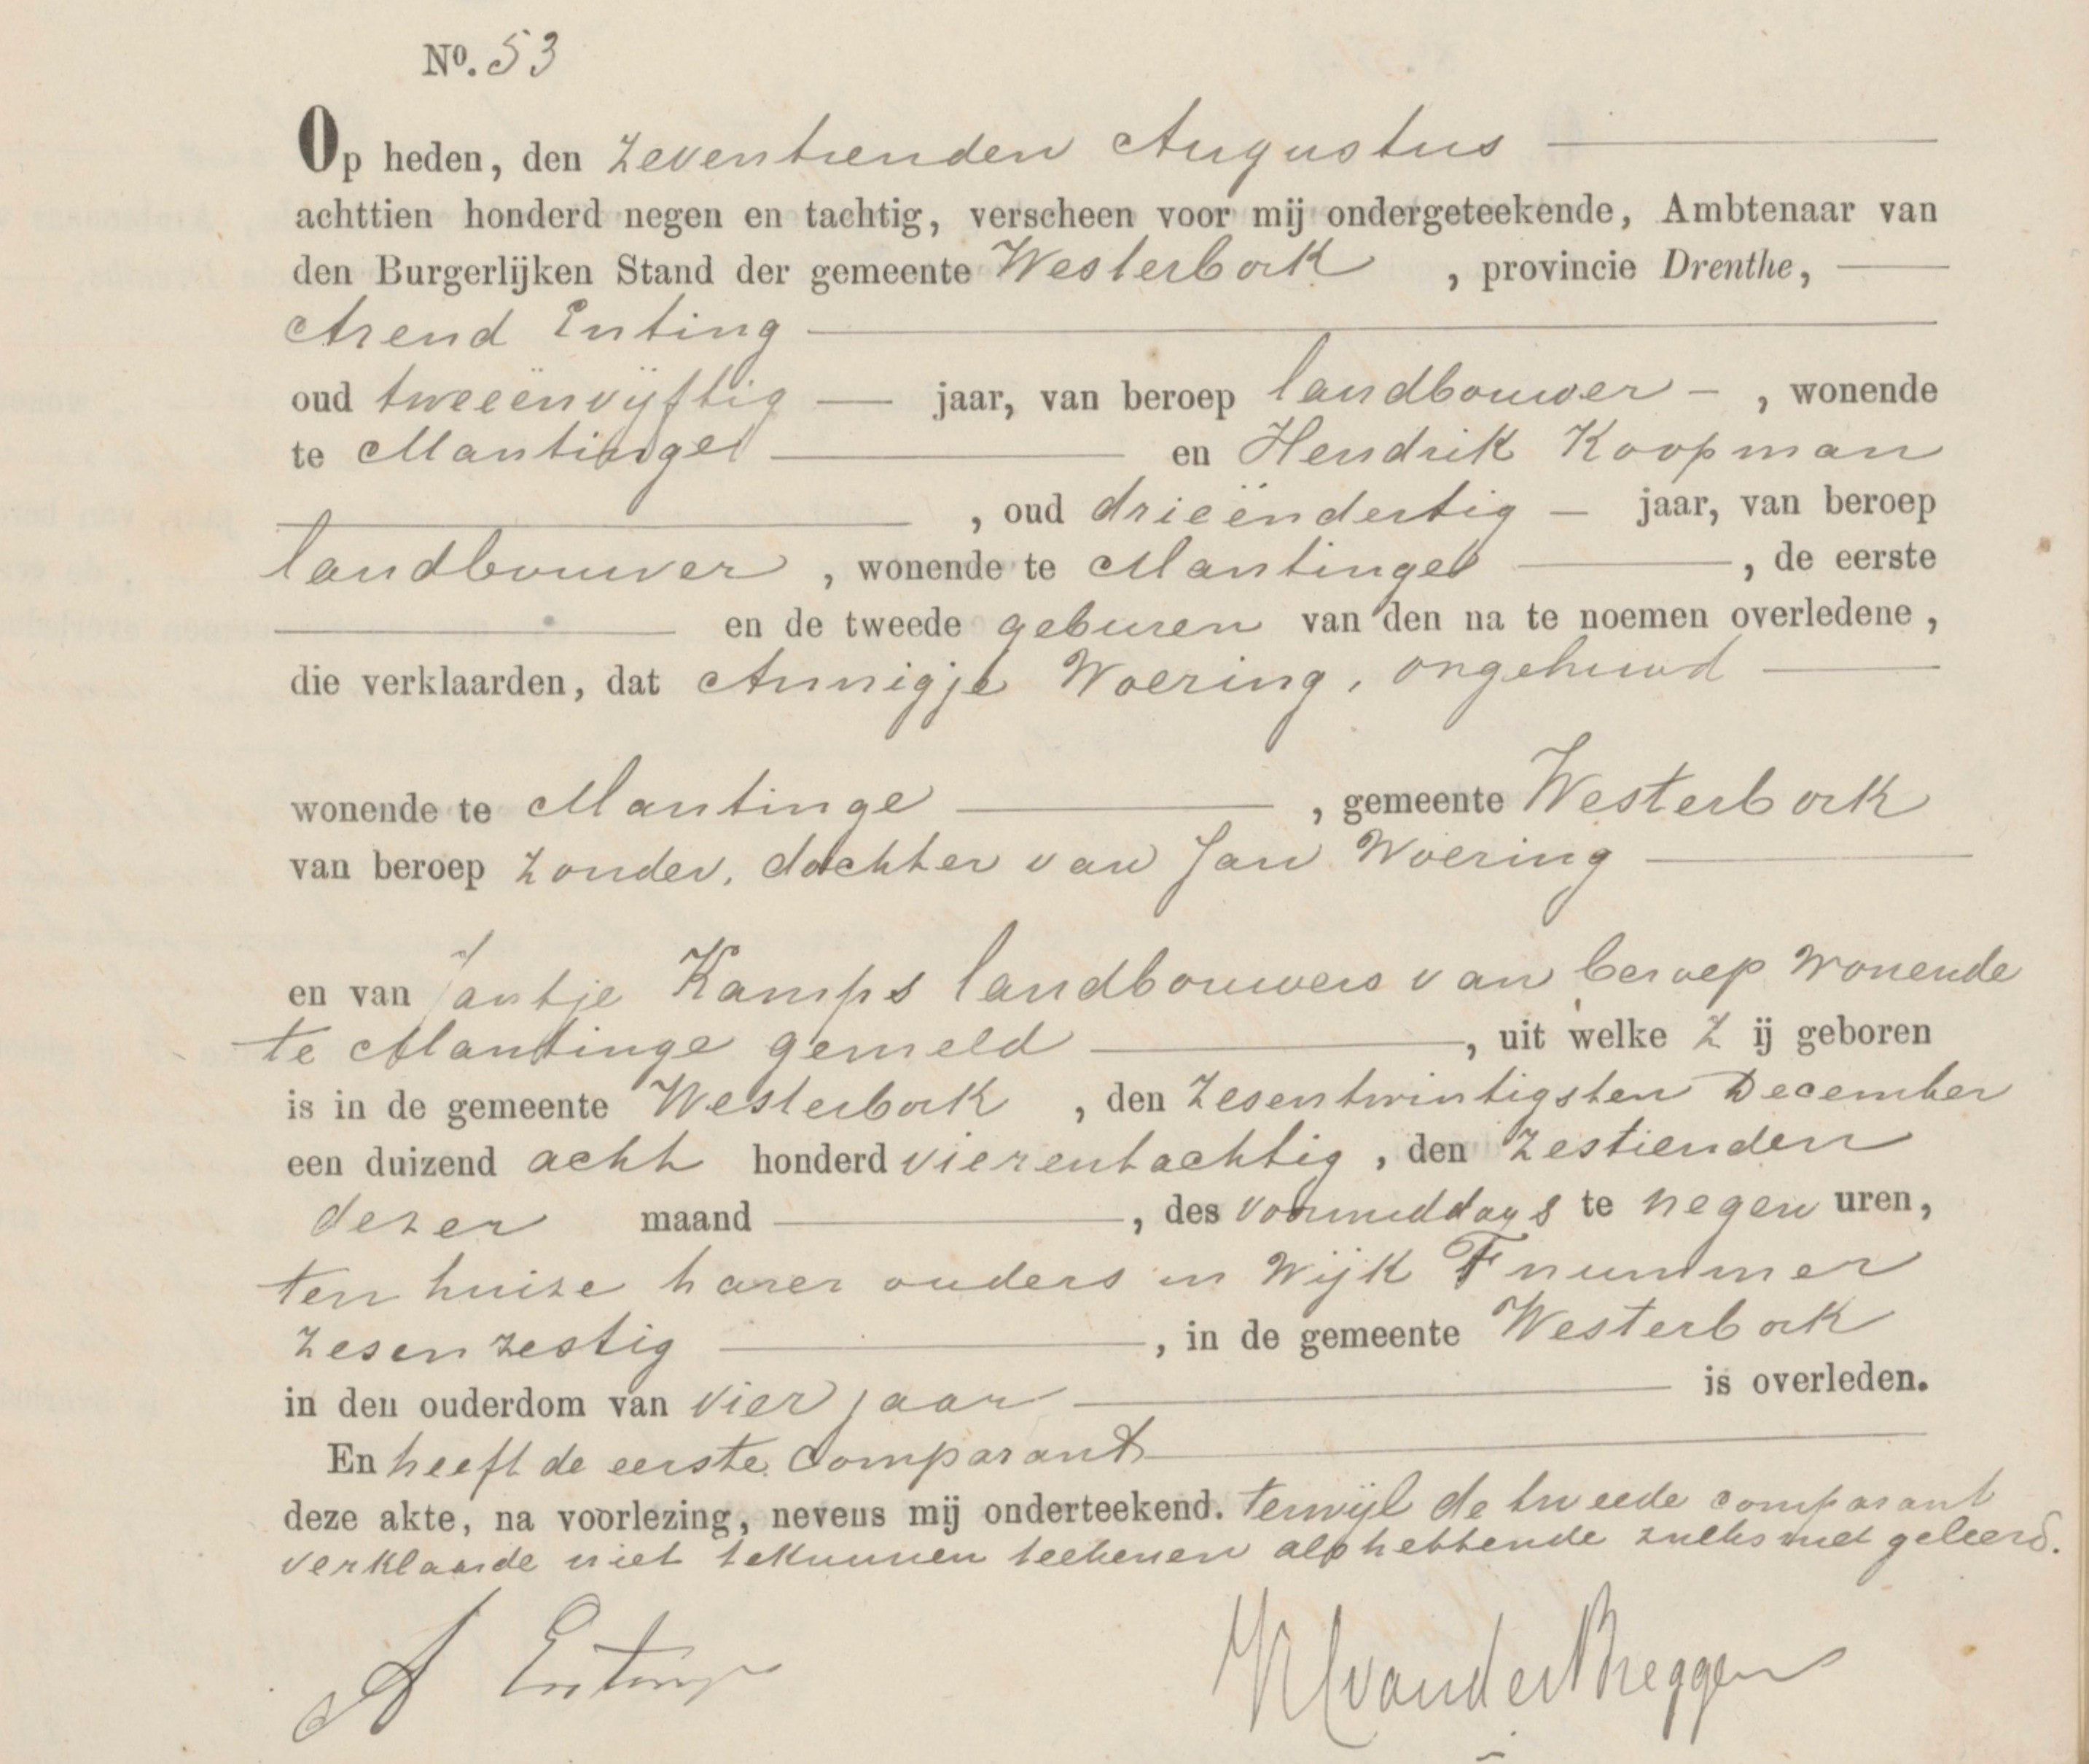 No. 53
Op heden, den zeventienden Augustus
achttien honderd negen en tachtig, verscheen voor mij ondergeteekende, Ambtenaar van
den Burgerlijken Stand der gemeente Westerbork , provincie Drenthe,
Arend Enting
oud tweeënvijftig jaar, van beroep landbouwer , wonende
te Mantinge en Hendrik Koopman
, oud drieëndertig jaar, van beroep
landbouwer , wonende te Mantinge , de eerste
en de tweede geburen van den na te noemen overledene ,
die verklaarden, dat Annigje Woering, ongehuwd
wonende te Mantinge , gemeente Westerbork
van beroep zonder, dochter van Jan Woering
en van Jantje Kamps landbouwers van beroep wonende
te Mantinge gemeld , uit welke Z ij geboren
is in de gemeente Westerbork , den zesentwintigsten December
een duizend acht honderd vierentachtig , den zestienden
dezer maand , des voormiddags te negen uren,
ten huize harer ouders in Wijk F nummer
zesenzestig , in de gemeente Westerbork
in den ouderdom van vier jaar is overleden.
En heeft de eerste comparant
deze akte, na voorlezing, nevens mij onderteekend. terwijl de tweede comparant
verklaarde niet te kunnen teekenen als hebbende zulks niet geleerd.
A Enting van der Breggen